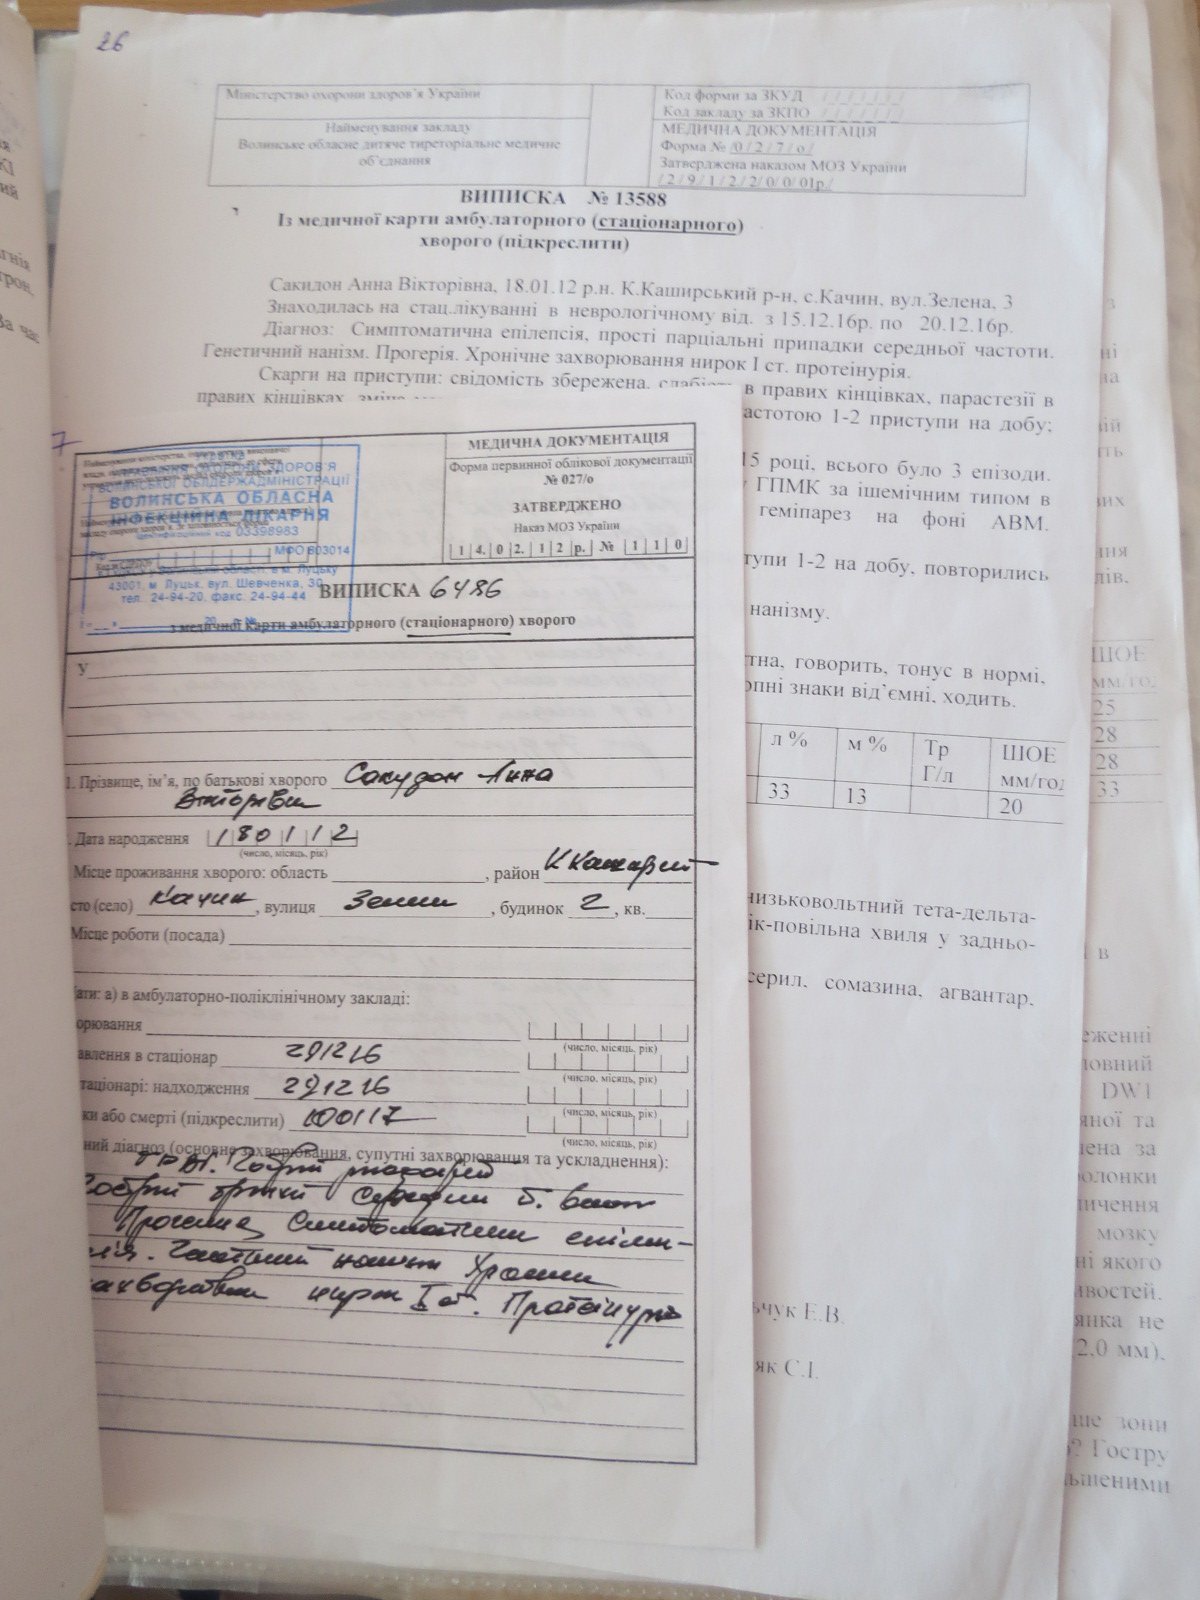 26
Міністерство охорони здоров'я України
Код форми за ЗКУД / / / / / / /
Код закладу за ЗКПО / / / / / / /
Найменування закладу
Волинське обласне дитяче тиреторіальне медичне
об'єднання
МЕДИЧНА ДОКУМЕНТАЦІЯ
Форма № /0/2/7/о/
Затверджена наказом МОЗ України
/2/9/1/2/2/0/0/01р./
ВИПИСКА № 13588
Із медичної карти амбулаторного (стаціонарного)
хворого (підкреслити)
Сакидон Анна Вікторівна, 18.01.12 р.н. К.Каширський р-н, с.Качин, вул.Зелена, 3
Знаходилась на стац.лікуванні в неврологічному від. з 15.12.16р. по 20.12.16р.
Діагноз: Симптоматична епілепсія, прості парціальні припадки середньої частоти.
Генетичний нанізм. Прогерія. Хронічне захворювання нирок І ст. протеінурія.
Скарги на приступи: свідомість збережена, слабість в правих кінцівках, парастезії в
правих кінцівках,
частотою 1-2 приступи на добу;
15 році, всього було 3 епізоди.
ГПМК за ішемічним типом в
геміпарез на фоні АВМ.
тупи 1-2 на добу, повторились
нанізму.
тна, говорить, тонус в нормі,
опні знаки від'ємні, ходить.
л % м % Тр Г/л ШОЕ мм/год
33 13 20
низьковольтний тета-дельта-
ік-повільна хвиля у задньо-
серил, сомазина, агвантар,
ьчук Е.В.
як С.І.
7
УКРАЇНА
УПРАВЛІННЯ ОХОРОНИ ЗДОРОВ'Я
ВОЛИНСЬКОЇ ОБЛДЕРЖАДМІНІСТРАЦІЇ
ВОЛИНСЬКА ОБЛАСНА
ІНФЕКЦІЙНА ЛІКАРНЯ
ідентифікаційний код 03398983
МФО 803014
43001, м. Луцьк, вул. Шевченка, 30
тел. 24-94-20, факс. 24-94-44
МЕДИЧНА ДОКУМЕНТАЦІЯ
Форма первинної облікової документації
№ 027/о
ЗАТВЕРДЖЕНО
Наказ МОЗ України
1 4. 0 2. 1 2 р. № 1 1 0
ВИПИСКА 6486
з медичної карти амбулаторного (стаціонарного) хворого
У
1. Прізвище, ім'я, по батькові хворого Сакидон Анна
Вікторівна
. Дата народження 1 8 0 1 1 2
(число, місяць, рік)
Місце проживання хворого: область , район К Каширський
сто (село) Качин , вулиця Зелена , будинок 2 , кв.
Місце роботи (посада)
ати: а) в амбулаторно-поліклінічному закладі:
орювання
(число, місяць, рік)
авлення в стаціонар 291216
(число, місяць, рік)
таціонарі: надходження 291216
(число, місяць, рік)
ки або смерті (підкреслити) 100117
(число, місяць, рік)
ний діагноз (основне захворювання, супутні захворювання та ускладнення):
ГРВІ. Гострий
Гострий
Прогерія Симптоматична епілеп-
сія. нанізм Хронічне
захворювання нирок І ст. Протеінурія
ШОЕ
мм/год
25
28
28
33
еженні
DW1
яної та
ена за
олонки
ичення
мозку
ні якого
ивостей.
янка не
2,0 мм).
ше зони
? Гостру
ьшеними